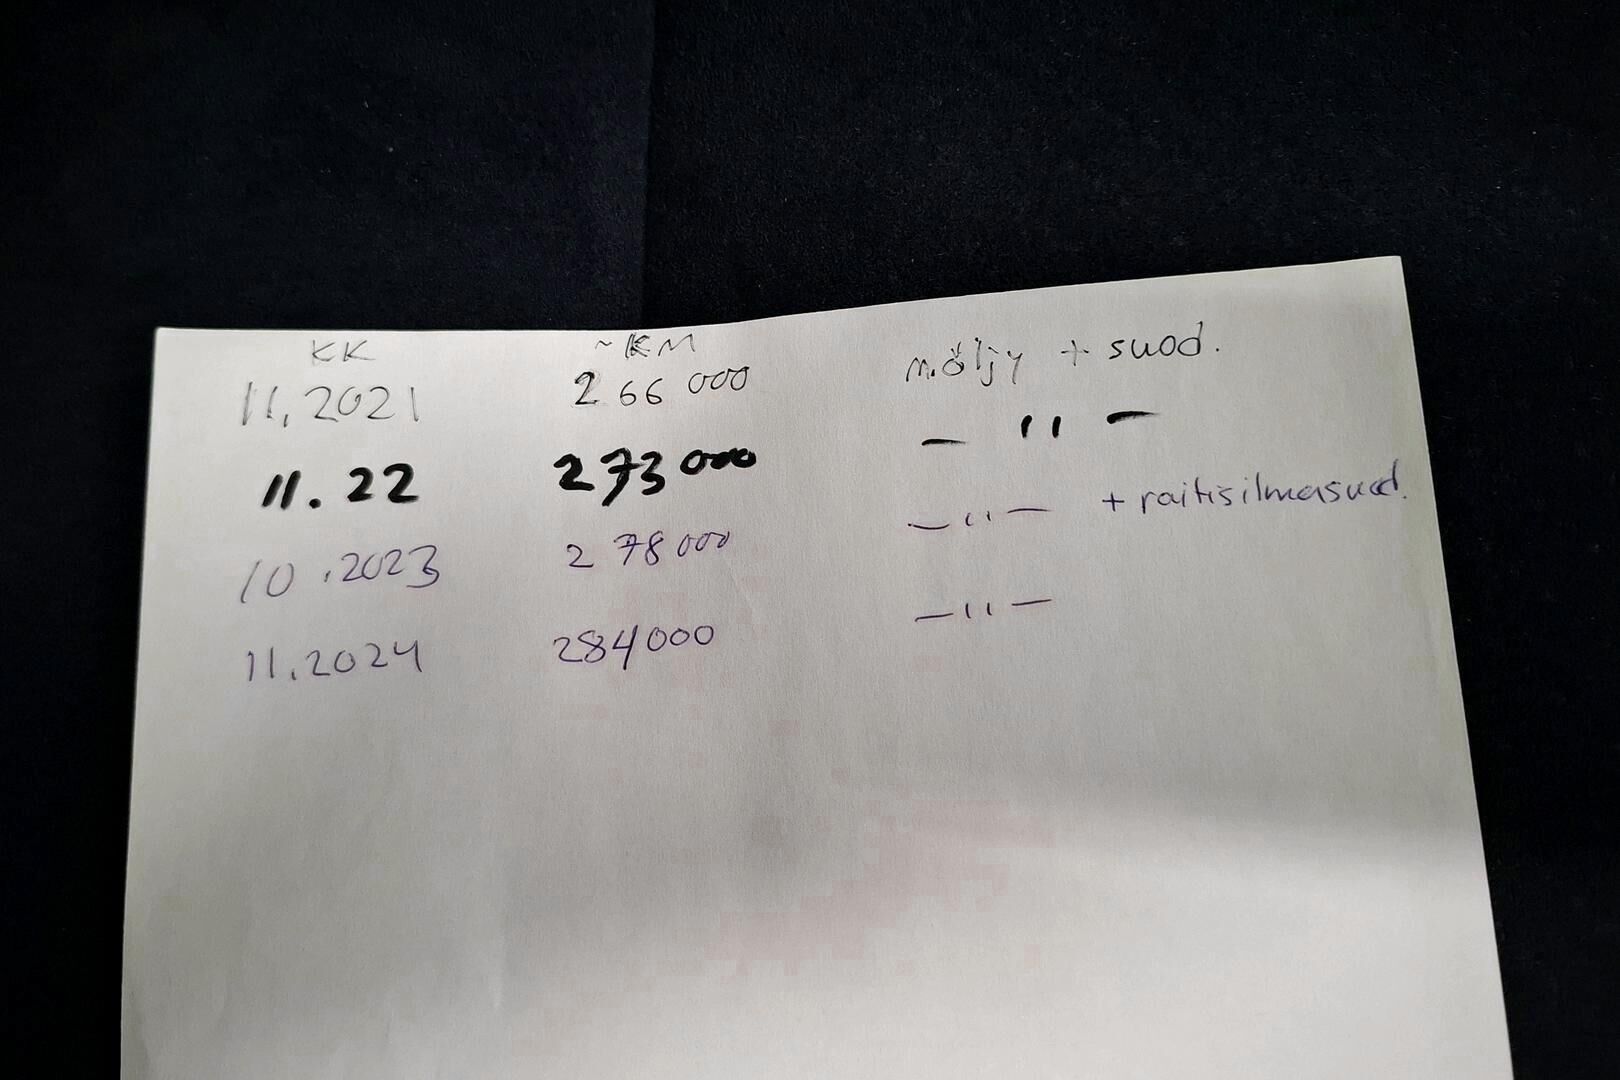 KK ~KM
11.2021 266 000 m.öljy + suod.
11.22 273 000 — " —
10.2023 278 000 — " — + raitisilmasuod.
11.2024 284000 — " —